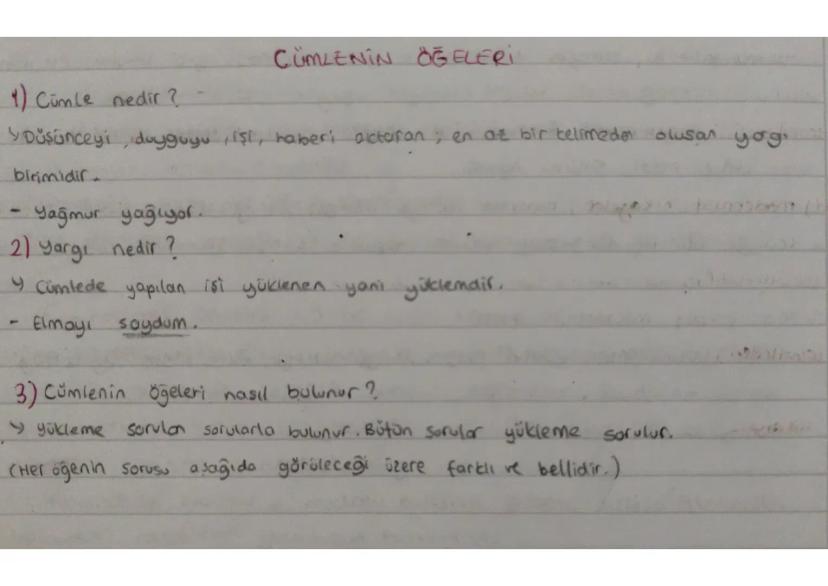 CÜMLENİN ÖĞELERİ
1) Cümle nedir?
↳ Düşünceyi, duyguyu, işi, haberi aktaran; en az bir kelimeden oluşan yargı
birimidir.
- Yağmur yağıyor.
2) Yargı nedir?
↳ Cümlede yapılan işi yüklenen yani yüklemdir.
- Elmayı soydum.
3) Cümlenin öğeleri nasıl bulunur?
↳ Yükleme sorulan sorularla bulunur. Bütün sorular yükleme sorulur.
(Her öğenin sorusu aşağıda görüleceği üzere farklı ve bellidir.)